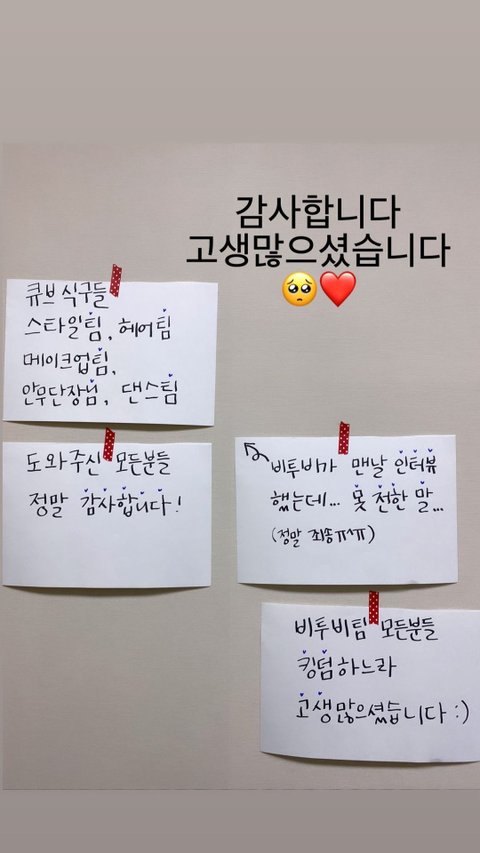 감사합니다
고생많으셨습니다
🥺❤️
큐브 식구들
스타일팀, 헤어팀
메이크업팀,
안무단장님, 댄스팀
도와주신 모든분들
정말 감사합니다!
비투비가 맨날 인터뷰
했는데... 못 전한 말...
(정말 죄송ㅠ^ㅠ)
비투비팀 모든분들
킹덤하느라
고생많으셨습니다 :)